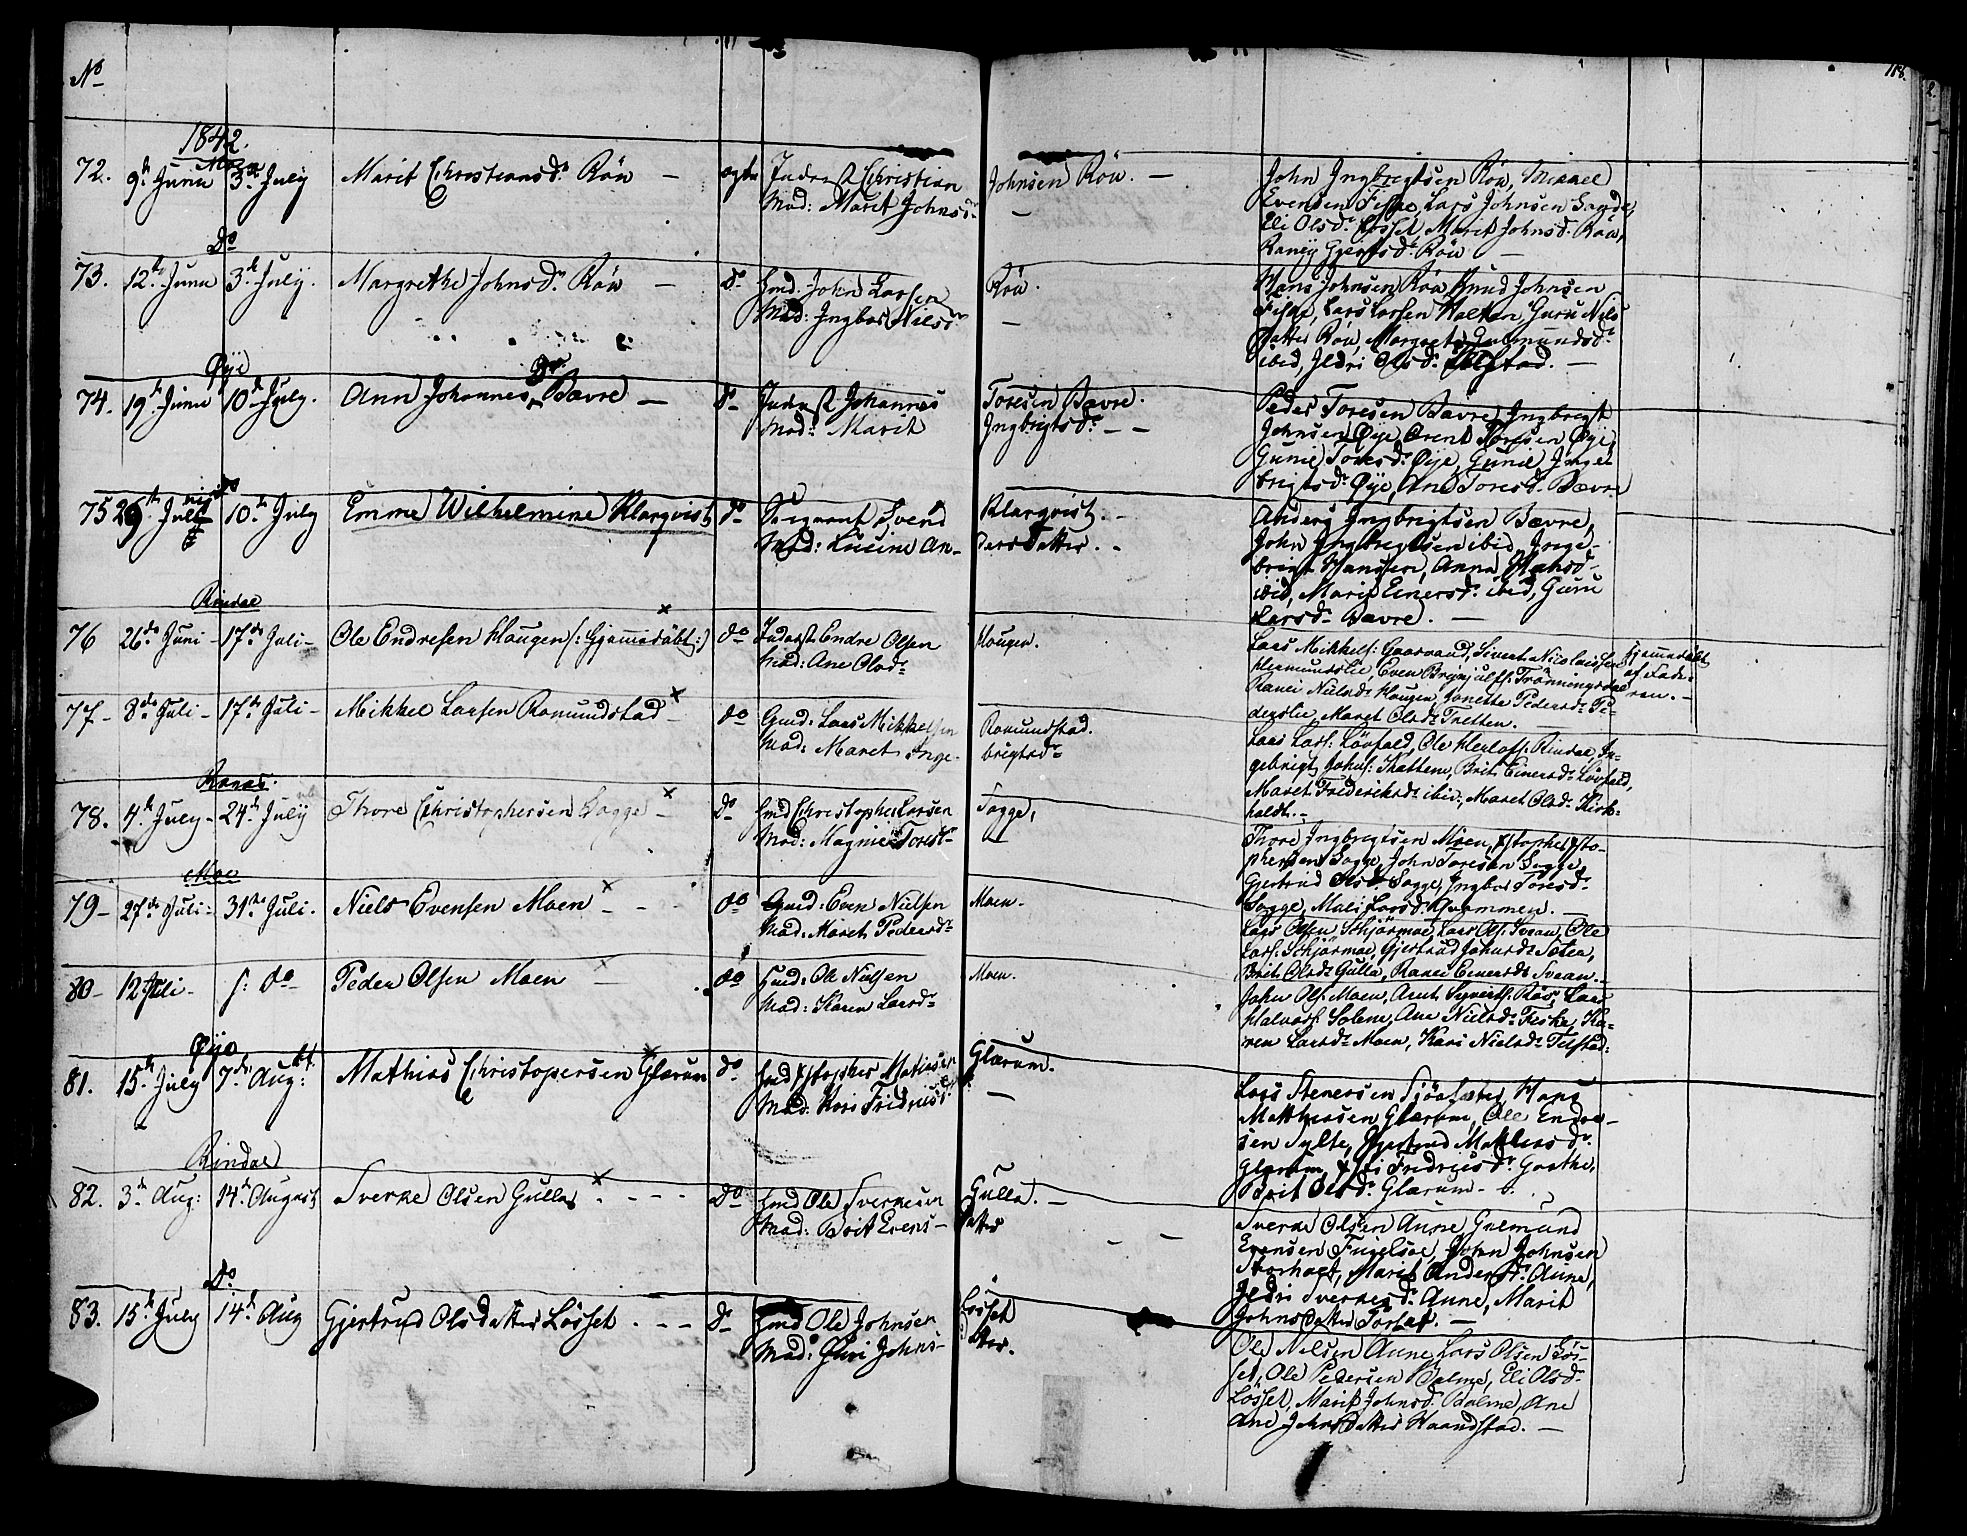 118.
No
1842.
Moen
72. 9de Juni 3de July Marit Christiansdr Röv — ægte Inderst Christian Johnsen Röv. —
Mod: Marit Johnsdr —
John Ingbrigtsen Röv, Mikkel
Evensen Fiske, Lars Johnsen Sande,
Eli Olsdr Løsset, Marit Johnsdr Röv,
Raney Gjertsdr Röv —
Do
73. 12te Juni 3de July. Margrethe Johnsdr Röv — do Gmd. John Larsen Röv. —
Mod: Ingbor Nilsdr —
Hans Johnsen Röv, Knud Johnsen
Fiske, Lars Larsen Holten, Guru Nils
Datter Röv, Margrete Gulmundsdr
ibid, Jldri Olsdr Telstad. —
Øye
74. 19de Juni 10de July. Ann Johannesdr Bævre — do Inderst Johannes Toresen Bævre.
Mod: Marit Ingbrigtsdr — —
Peder Toresen Bævre, Ingbrigt
Johnsen Øye, Arent Toresen Øye,
Gunil Toresdr Øye, Gunil Inge-
brigtsdr Øye, Ane Toresdr Bævre
do
75 29de Juni 10de July Emme Wilhelmine Klarqvist do Sergeant Svend Klarqvist. —
Mod: Lucine An- dersdatter. -
Anders Ingbrigtsen Bævre,
John Ingbrigtsen ibid, Inge-
brigt Hansen, Anna Hansd
ibid, Marit Einersdr ibid, Guru
Larsdr Bævre. —
Rindal
76 26de Juni - 17de Juli - Ole Endresen Haugen (: Hjemmedöbt :) × do Inderst Endre Olsen Haugen.
Mod: Ane Olsdr
Lars Mikkels: Gaasvand, Sivert Nicolaissen
Hermundslie, Even Brynjulfs: Trönningsdal
Ranei Nielsdr Haugen, Jonetta Pedersdr Pe-
derslie, Maret Olsdr Tretten.
hjemmedöbt
af Fade-
ren. -
77 - 8de Juli - 17de Juli - Mikkel Larsen Romundstad × - do Gmd: Lars Mikkelsen Romundstad.
Mod: Maret Inge- brigtsdr
Lars Lars: Løvfald, Ole Herlofs: Rindal, In-
gebrigt Johns: Skattem, Brit Einersdr Løvfald,
Maret Frederiksdr ibid, Maret Olsdr Kirk-
holdt. -
Ranæs.
78. 4de July - 24de July Thore Christophersen Sogge × - do Gmd Christopher Larsen Sogge,
Mod: Magnil Toresdr —
Thore Ingbrigtsen Moen, Xstopher Xsto-
phersen Sogge, John Toresen Sogge,
Gjertrud Olsdr Sogge, Ingbor Toresdr
Sogge, Mali Larsdr Qvammen. —
Moe
79 - 27de Juli - 31te Juli. Niels Evensen Moen × - - do Gmd: Even Nielsen Moen.
Mod: Maret Pedersdr
Lars Olsen Schjörmoe, Lars Ols: Svean, Ole
Lars: Schjörmoe, Gjertrud Johnsdr Sæter,
Brit Olsdr Gulla, Ranei Einersdr Svean. -
80 - 12 Juli - s: do Peder Olsen Moen × — do Gmd: Ole Nielsen Moen.
Mod: Karen Larsdr
John Ols: Moen, Arnt Syverts: Røs, Lars
Halvors: Solem, Ane Nielsdr Fiske, Ka-
ren Larsdr Moen, Kari Nielsdr Telstad.
Øye
81. 15de July 7de Aug: Mathias Christopersen Glærum × do Gmd Xstopher Matiasen Glærum.
Mod: Kari Fridriksdr —
Lars Stenersen Sjöasæter, Hans
Matthiasen Glærum, Ole Endre-
sen Sylte, Gjertrud Mathiasdr
Glærum, Eli Fredriksdr Grøthe,
Berit Olsdr Glærum. -
Rindal
82. 3de Aug: 14de August Sverke Olsen Gulla × . - - - do Gmd Ole Sverkesen Gulla. —
Mod: Brit Evens- datter — —
Sverke Olsen Aune, Gulmund
Evensen Fugelsøe, John Johnsen
Storholt, Marit Andersdr Aune,
Jldri Sverkesdr Aune, Marit
Johnsdatter Torset. —
Do
83. 15de July 14de Aug Gjertrud Olsdatter Løsset . - - - do Gmd Ole Johnsen Løsset
Mod: Guri Johns- datter.
Ole Nilsen Aune, Lars Olsen Løs-
set, Ole Pedersen Bolme, Eli Olsdr
Løsset, Marit Johnsdr Bolme, Ane
Ane Johnsdatter Haandstad. —